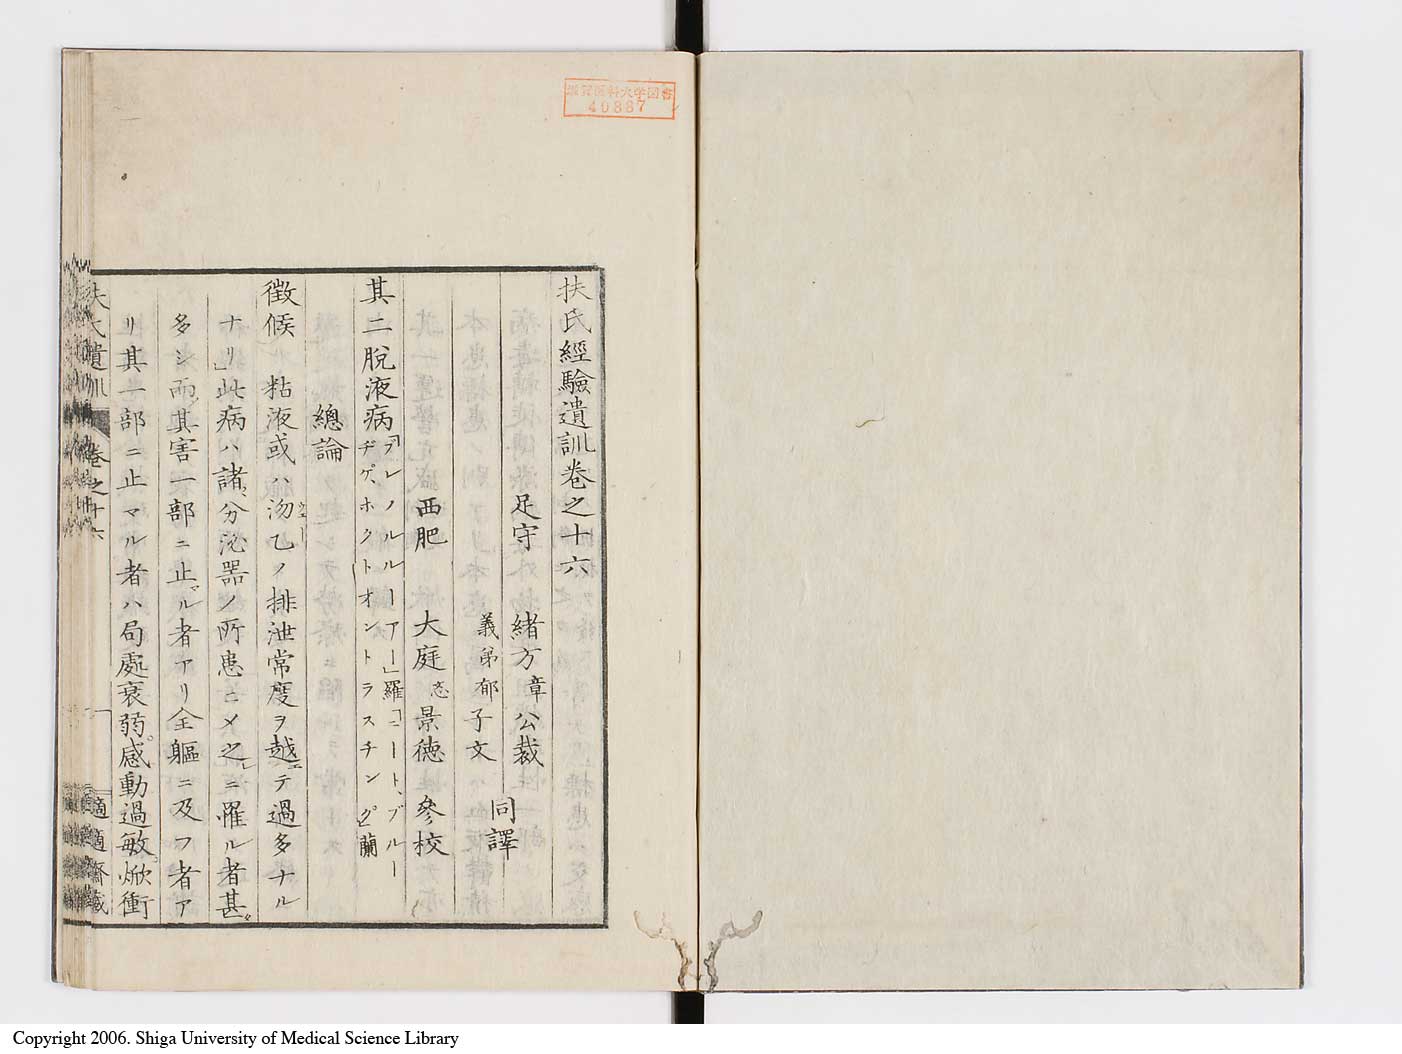 滋賀医科大学図書
40887
扶氏經驗遺訓卷之十六
足守　緒方章公裁
義弟郁子文　同譯
西肥　大庭忞景德　參校
其二脫液病「ブレノルルーアー」羅「ニート、ブルー
ヂゲ、ホクトオントラスチング」蘭
總論
徵候　粘液或ハ沕乙ノ排泄常度ヲ越エテ過多ナル
ナリ」此病ハ諸分泌器ノ所患ニメ之ニ罹ル者甚
多シ而其害一部ニ止マル者アリ全軀ニ及フ者ア
リ其一部ニ止マル者ハ局處衰弱。感動過敏。焮衝
扶氏遺訓　卷之十六
適適齋藏
Copyright 2006. Shiga University of Medical Science Library